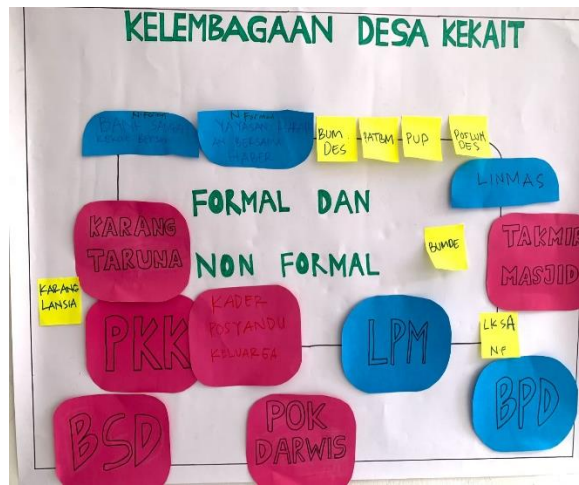 KELEMBAGAAN DESA KEKAIT
N-Formal
N Formal
YAYASAN
BERSAMA
BUM.
DES
PATBM
PUP
POSLUH
DES
LINMAS
FORMAL DAN
NON FORMAL
KARANG
TARUNA
BUMDE
TAKMIR
MASJID
KARANG
LANSIA
PKK
KADER
POSYANDU
KELUARGA
LPM
LKSA
NF
BPD
BSD
POK
DARWIS